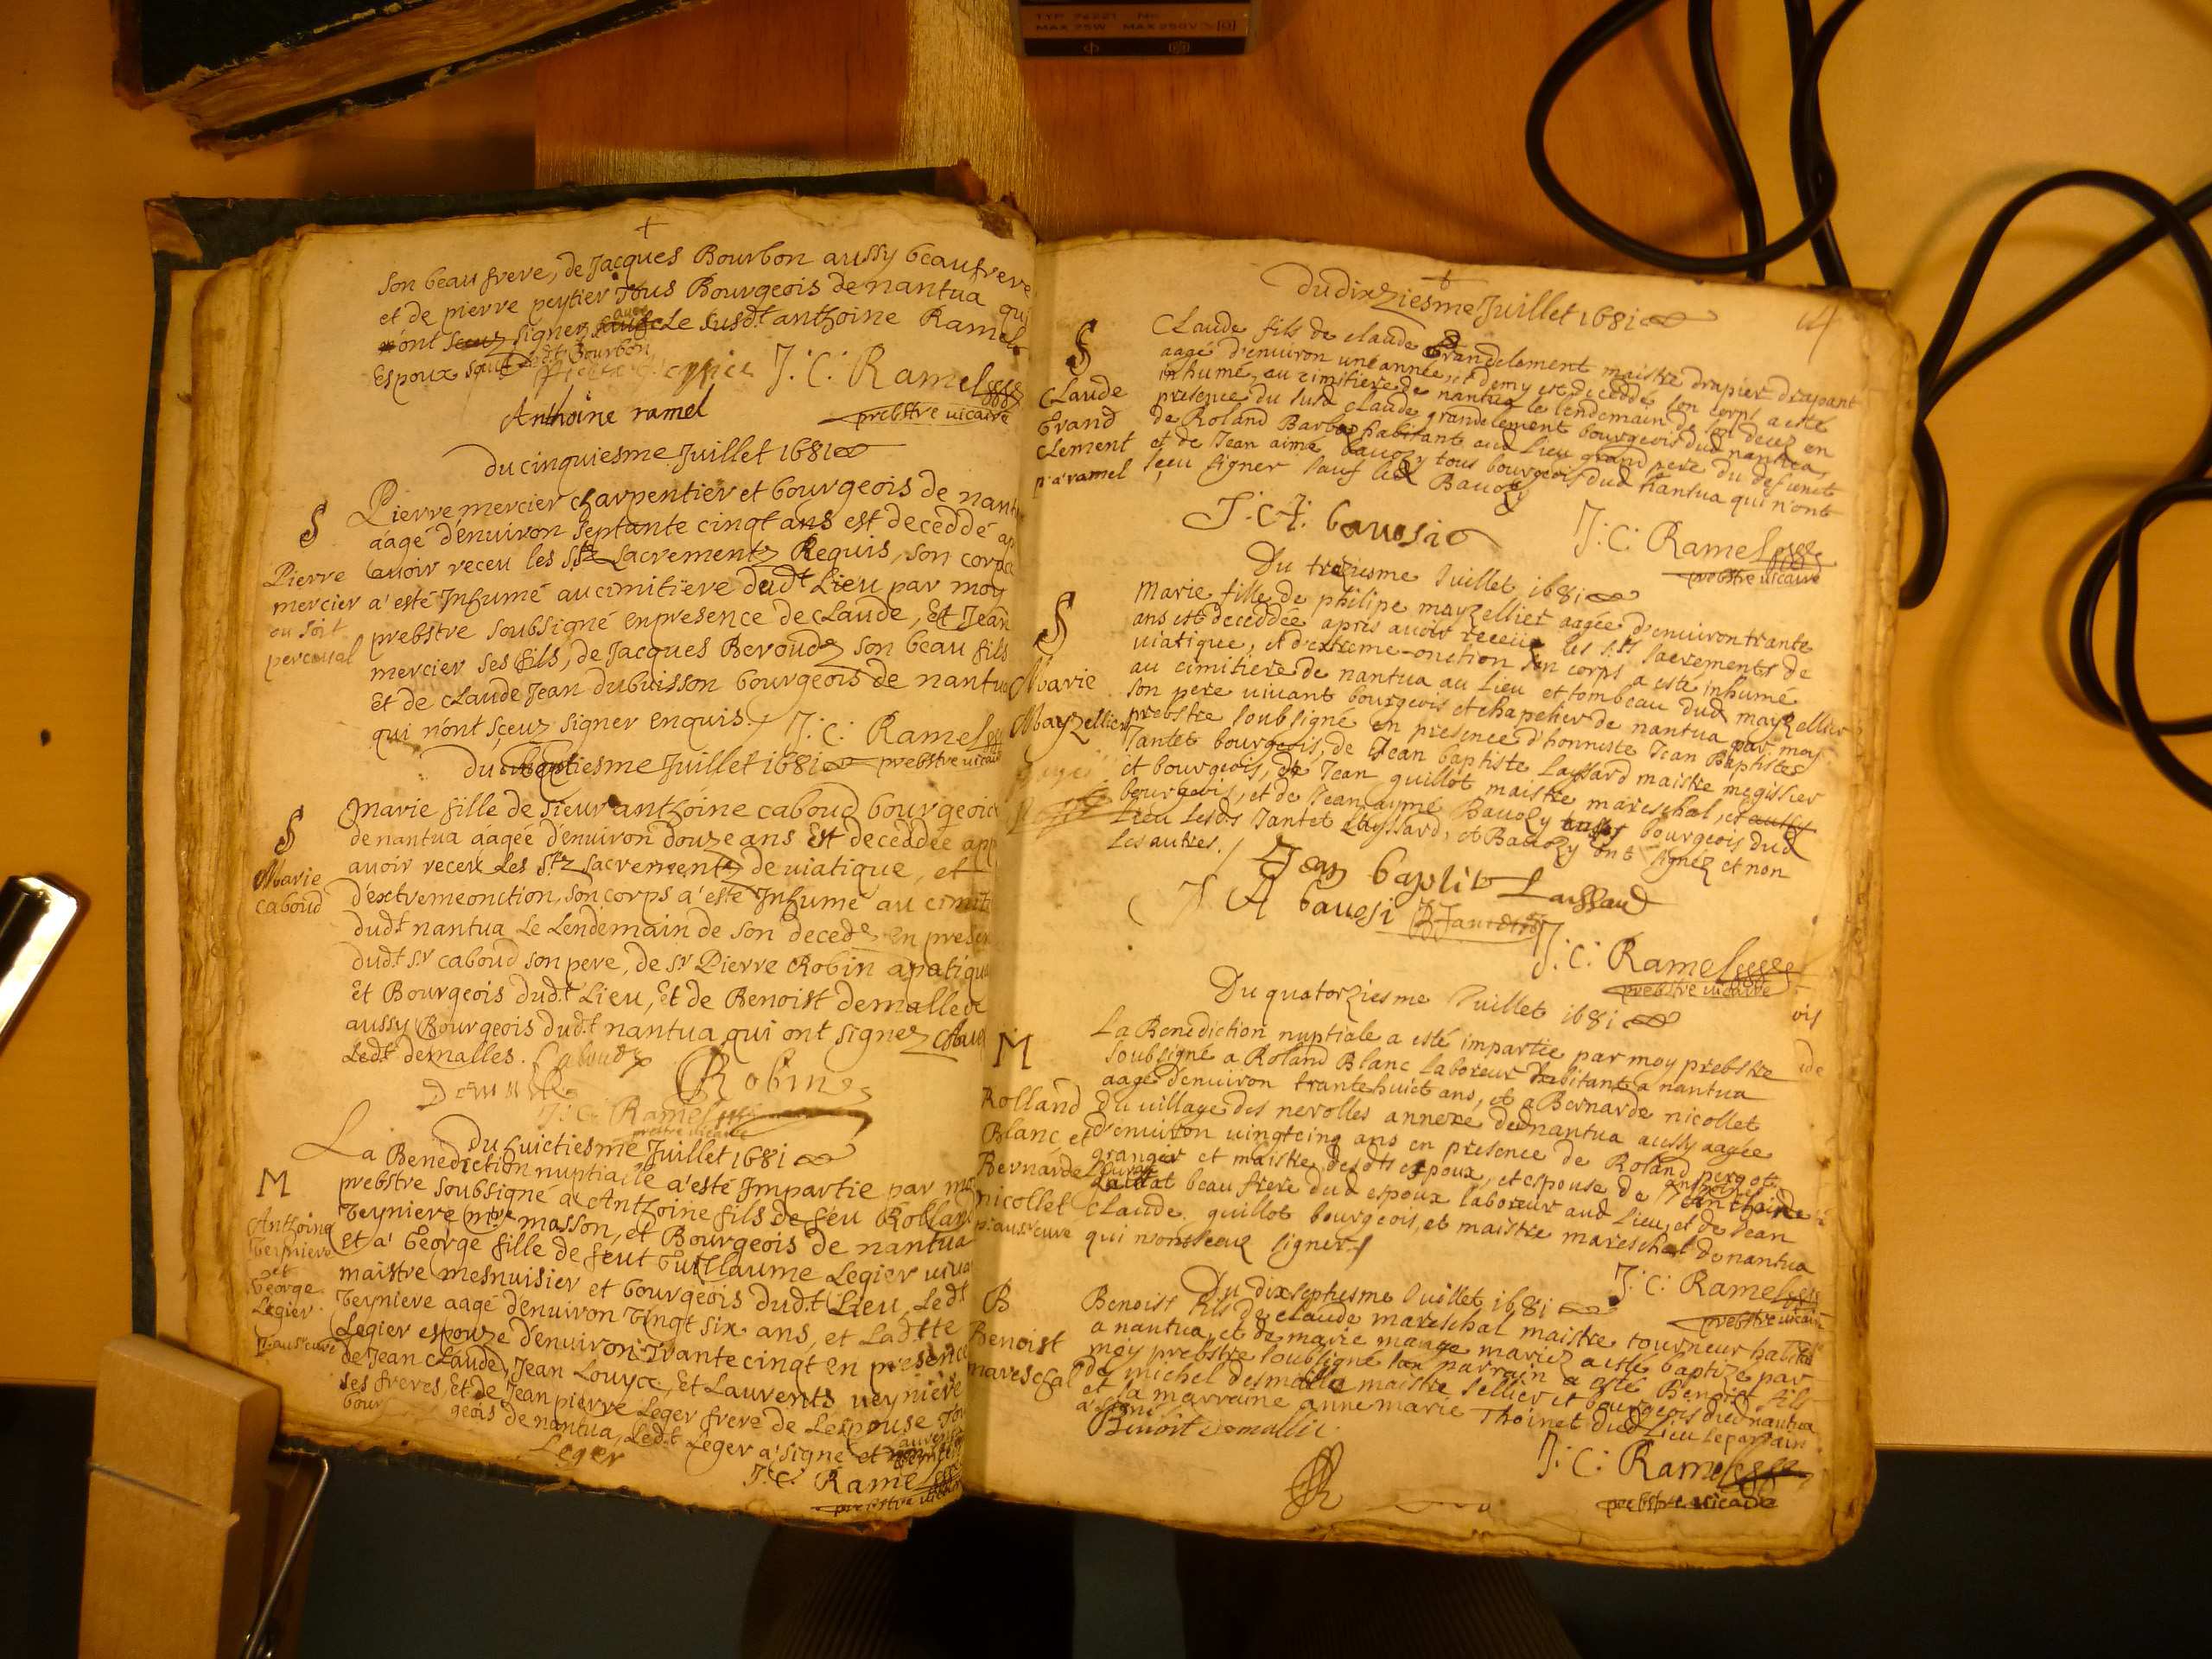 son beau frere, de Jacques Bourbon aussy beaufrere
et de pierre peytier tous Bourgeois de nantua qui
n'ont sceuz signer le susd.t anthoine Ramel
Espoux sauf led.t Bourbon
J: C: Ramel
Anthoine ramel
prebstre vicaire
du cinquiesme Juillet 1681
S
Pierre
mercier
ou soit
perceual
Pierre mercier charpentier et bourgeois de nant
aagé d'enuiron septante cinqt ans est deceddé ap
auoir receu les S.ts Sacrementz Requis, son corps
a'esté Inhumé au cimitiere dud.t Lieu par moy
prebstre soubsigné en presence de Claude, Et Jean
mercier ses fils, de Jacques Beroudz son beau fils
Et de Claude Jean dubuisson bourgeois de nantua
qui n'ont sçeuz signer enquis.
J: C: Ramel
prebstre vicair
du septiesme Juillet 1681
S
Marie
caboud
Marie fille de sieur anthoine caboud bourgeois
de nantua aagée d'enuiron douze ans Est deceddée app
auoir receu les S.tz Sacrementz de viatique, et
d'extremeonction, son corps a'esté Inhumé au cimit
dud.t nantua Le Lendemain de son decedz en presen
dud.t s.r caboud son pere, de s.r Pierre Robin apatiqu
Et Bourgeois dud.t Lieu, Et de Benoist demalles
aussy Bourgeois dud.t nantua qui ont signez
Led.t demalles.
Caboudz
Robin
J: C: Ramel
prestre vicaire
Du huictiesme Juillet 1681
M
Anthoine
Teyniere
et
George
Legier
La Benediction nuptialle a'esté Impartie par mo
prebstre soubsigné a Anthoine fils de feu Rolland
Teyniere m.re masson, et Bourgeois de nantua
et a' George fille de feut Guillaume Legier viua
maistre mesnuisier et bourgeois dud.t Lieu, Led.t
Teyniere aagé d'enuiron Vingt six ans, et Lad.tte
Legier espouze d'enuiron Trante cinqt en presence
de Jean Claude, Jean Louyce, Et Laurents veyniere
ses freres, Et de Jean pierre Leger frere de Lespouse
bourgeois de nantua, Led.t Leger a'signé et
Leger
J: C: Ramel
prebstre
du dixziesme Juillet 1681
S
Claude
Grand
clement
p.a ramel
Claude fils de claude Grandclement maistre drapier drapant
aagé d'enuiron une année et demy est deceddé son corps a esté
inhumé, au cimitiere de nantua le lendemain de son decez en
presence du susd claude grandclement bourgeois dud nantua,
de Roland Barbe habitant aud Lieu grand pere du defunct
et de Jean aimé Bauozy tous bourgeois dud nantua qui n'ont
sçeu signer sauf led Bauozy
bauosi
J: C: Ramel
prebstre vicaire
Du trezusme Juillet 1681
S
Marie
Mayzellier
Marie fille de philipe mayzellier aagée d'enuiron trante
ans est deceddée apres auoir receüe les S.ts sacrements de
viatique, et d'extreme-onction son corps a esté inhumé
au cimitiere de nantua au lieu et tombeau dud mayzellier
son pere viuant bourgeois et chapelier de nantua par moy
prebstre soubsigné en presence d'honneste Jean Baptiste
Jantet bourgeois, de Jean baptiste Layssard maistre megissier
et bourgeois, de Jean guillot maistre mareschal, et aussy
bourgeois, et de Jean aymé Bauozy bourgeois dud
Lieu lesds Jantet Layssard, et Bauozy ont signéz et non
les autres.
Jean baptiste Laissard
J A bauosi
J.C: Ramel
prebstre vicaire
Du quatorziesme Juillet 1681
M
Rolland
Blanc et
Bernarde
nicollet
La Benediction nuptiale a esté impartie par moy prebstre
soubsigné a Roland Blanc laboreur habitant a nantua
aagé d'enuiron trante huict ans, et a Bernarde nicollet
du village des nerolles annexe dud nantua aussy aagée
d'enuiron vingtcinq ans en presence de Roland pergot
granger et maistre desdts espoux, et espouse de
beau frere dud espoux laboreur aud Lieu, et de Jean
Claude guillot bourgeois, et maistre mareschal de nantua
qui n'ont sceuz signer
J: C: Ramel
prebstre vicaire
Du dixseptiesme Juillet 1681
B
Benoist
mareschal
Benoist fils de claude mareschal maistre tourneur habitant
a nantua, et de marie mange mariez a esté baptizé par
moy prebstre soubsigné son parrain a esté Benoist fils
de michel desmalle maistre sellier et bourgeois dud nantua
et sa marraine anne marie Thoinet dud Lieu le parrain
a signé
Benoit demallie
J: C: Ramel
prebstre vicaire